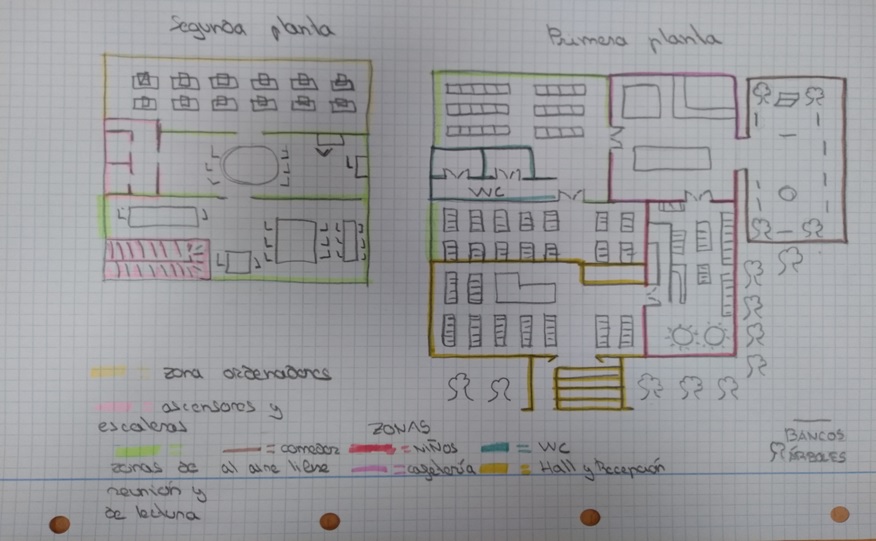 Segunda planta
Primera planta
WC
zona ordenadores
ascensores y
escaleras
ZONAS
= comedor
al aire libre
= NIÑOS
= WC
= cafetería
= Hall y Recepción
zonas de
reunión y
de lectura
BANCOS
ÁRBOLES